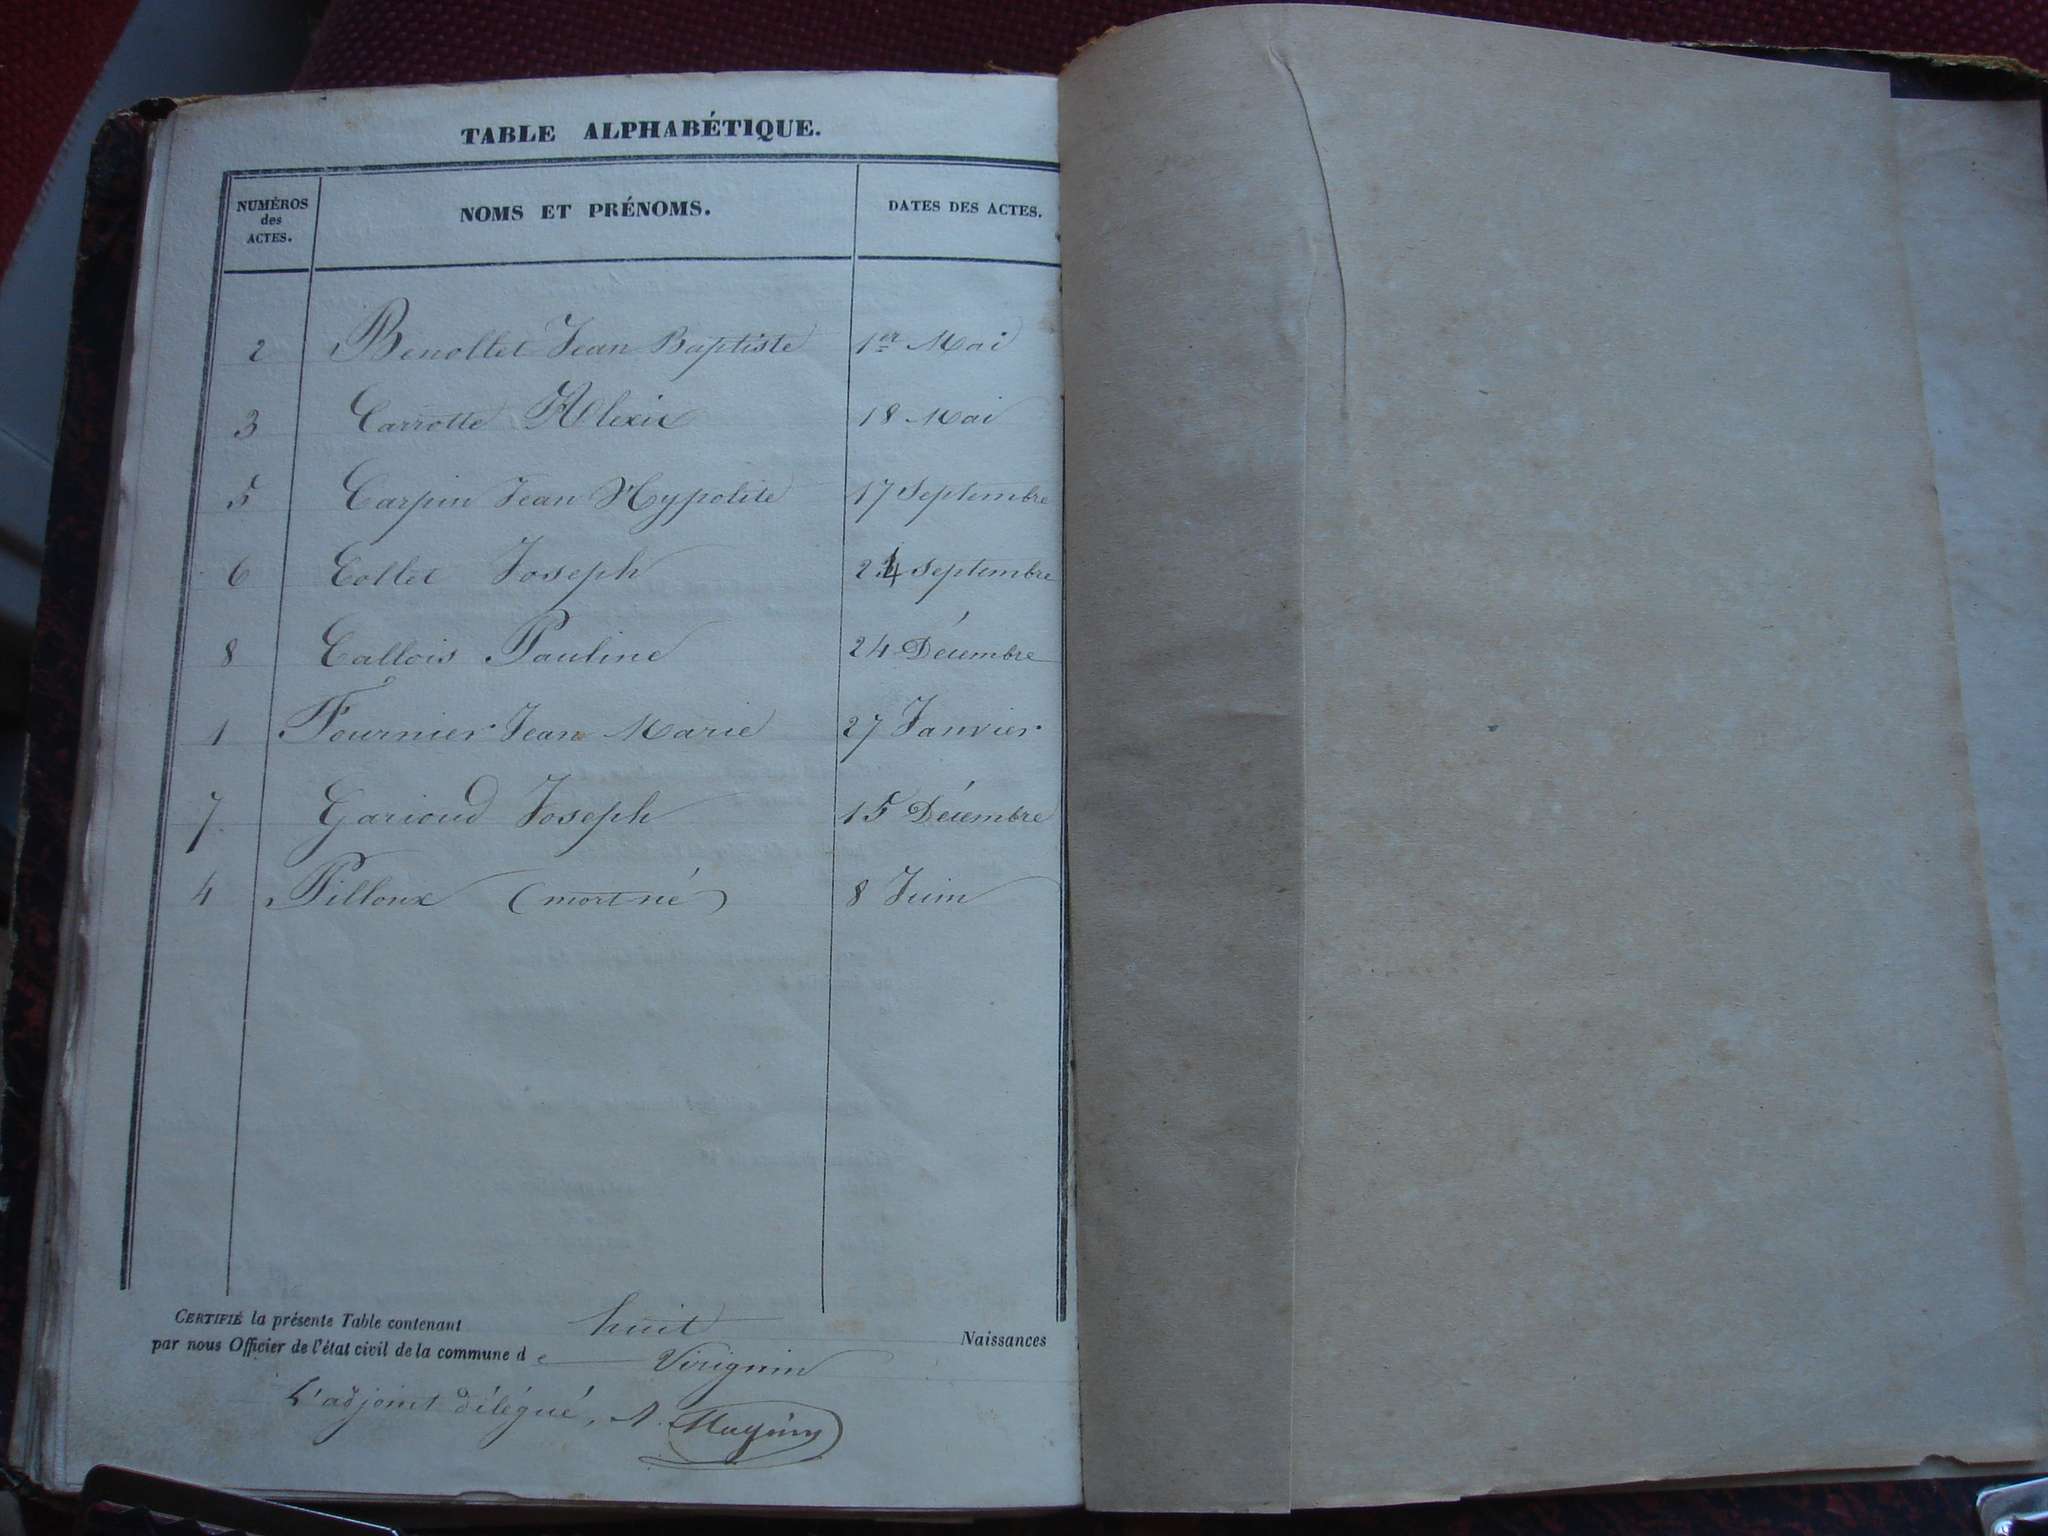 TABLE ALPHABÉTIQUE.
NUMÉROS des ACTES. NOMS ET PRÉNOMS. DATES DES ACTES.
2 Benollet Jean Baptiste 1er Mai
3 Carrotte Alexis 18 Mai
5 Carpin Jean Hypolite 17 Septembre
6 Collet Joseph 24 Septembre
8 Callois Pauline 24 Décembre
1 Fournier Jean Marie 27 Janvier
7 Garioud Joseph 15 Décembre
4 Pilloux (mort né) 8 Juin
CERTIFIÉ la présente Table contenant huit Naissances
par nous Officier de l'état civil de la commune de Virignin
L'adjoint délégué, A. Magnin